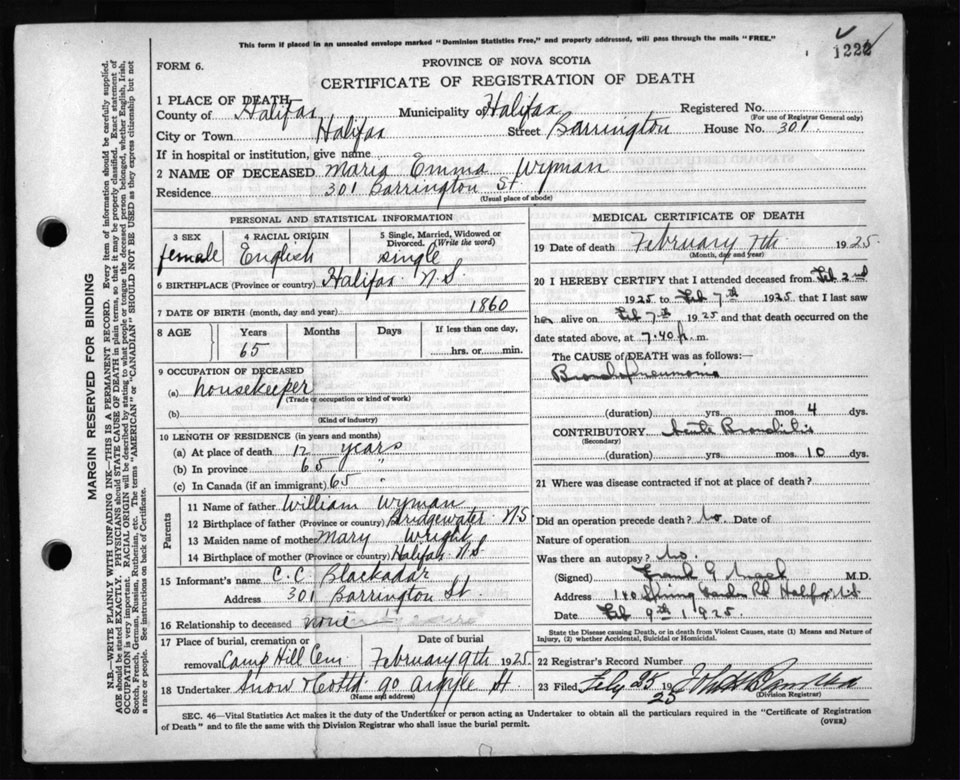 This form if placed in an unsealed envelope marked "Dominion Statistics Free," and properly addressed, will pass through the mails "FREE."
1222
FORM 6.
PROVINCE OF NOVA SCOTIA
CERTIFICATE OF REGISTRATION OF DEATH
1 PLACE OF DEATH
County of Halifax Municipality of Halifax Registered No.
(For use of Registrar General only)
City or Town Halifax Street Barrington House No. 301
If in hospital or institution, give name
2 NAME OF DECEASED Maria Emma Wyman
Residence 301 Barrington St
(Usual place of abode)
PERSONAL AND STATISTICAL INFORMATION
3 SEX female
4 RACIAL ORIGIN English
5 Single, Married, Widowed or Divorced. (Write the word) single
6 BIRTHPLACE (Province or country) Halifax N.S.
7 DATE OF BIRTH (month, day and year) 1860
8 AGE Years Months Days If less than one day,
65 hrs. or min.
9 OCCUPATION OF DECEASED
(a) housekeeper
(Trade or occupation or kind of work)
(b)
(Kind of industry)
10 LENGTH OF RESIDENCE (in years and months)
(a) At place of death 12 years
(b) In province 65 "
(c) In Canada (if an immigrant) 65 "
Parents
11 Name of father William Wyman
12 Birthplace of father (Province or country) Bridgewater N.S
13 Maiden name of mother Mary Wright
14 Birthplace of mother (Province or country) Halifax N.S
15 Informant's name C. C. Blackadar
Address 301 Barrington St.
16 Relationship to deceased none
17 Place of burial, cremation or removal Camp Hill Cem
Date of burial February 9th 1925
18 Undertaker Snow & Co Ltd 90 Argyle St
(Name and address)
MEDICAL CERTIFICATE OF DEATH
19 Date of death February 7th 1925
(Month, day and year)
20 I HEREBY CERTIFY that I attended deceased from Feb 2nd
1925 to Feb 7th 1925 that I last saw
her alive on Feb 7th 1925 and that death occurred on the
date stated above, at 7.40 p. m.
The CAUSE of DEATH was as follows:—
Bronchopneumonia
(duration) yrs. mos. 4 dys.
CONTRIBUTORY Acute Bronchitis
(Secondary)
(duration) yrs. mos. 10 dys.
21 Where was disease contracted if not at place of death?
Did an operation precede death? No. Date of
Nature of operation
Was there an autopsy? No.
(Signed) Frank G Mack M.D.
Address 140 Spring Garden Rd Halifax N.S.
Date Feb 9th 1925
State the Disease causing Death, or in death from Violent Causes, state (1) Means and Nature of Injury, (2) whether Accidental, Suicidal or Homicidal.
22 Registrar's Record Number
23 Filed Feby 28 1925
(Division Registrar)
SEC. 46—Vital Statistics Act makes it the duty of the Undertaker or person acting as Undertaker to obtain all the particulars required in the "Certificate of Registration
of Death" and to file the same with the Division Registrar who shall issue the burial permit.
(OVER)
MARGIN RESERVED FOR BINDING
N.B.—WRITE PLAINLY WITH UNFADING INK—THIS IS A PERMANENT RECORD. Every item of information should be carefully supplied.
AGE should be stated EXACTLY. PHYSICIANS should STATE CAUSE OF DEATH in plain terms, so that it may be properly classified. Exact statement of
OCCUPATION is very important. RACIAL ORIGIN will be described by stating to what people or tongue the deceased person belonged, whether English, Irish,
Scotch, French, German, Russian, Ruthenian, etc. The terms "AMERICAN" or "CANADIAN" SHOULD NOT BE USED as they express citizenship but not
a race or people. See instructions on back of Certificate.